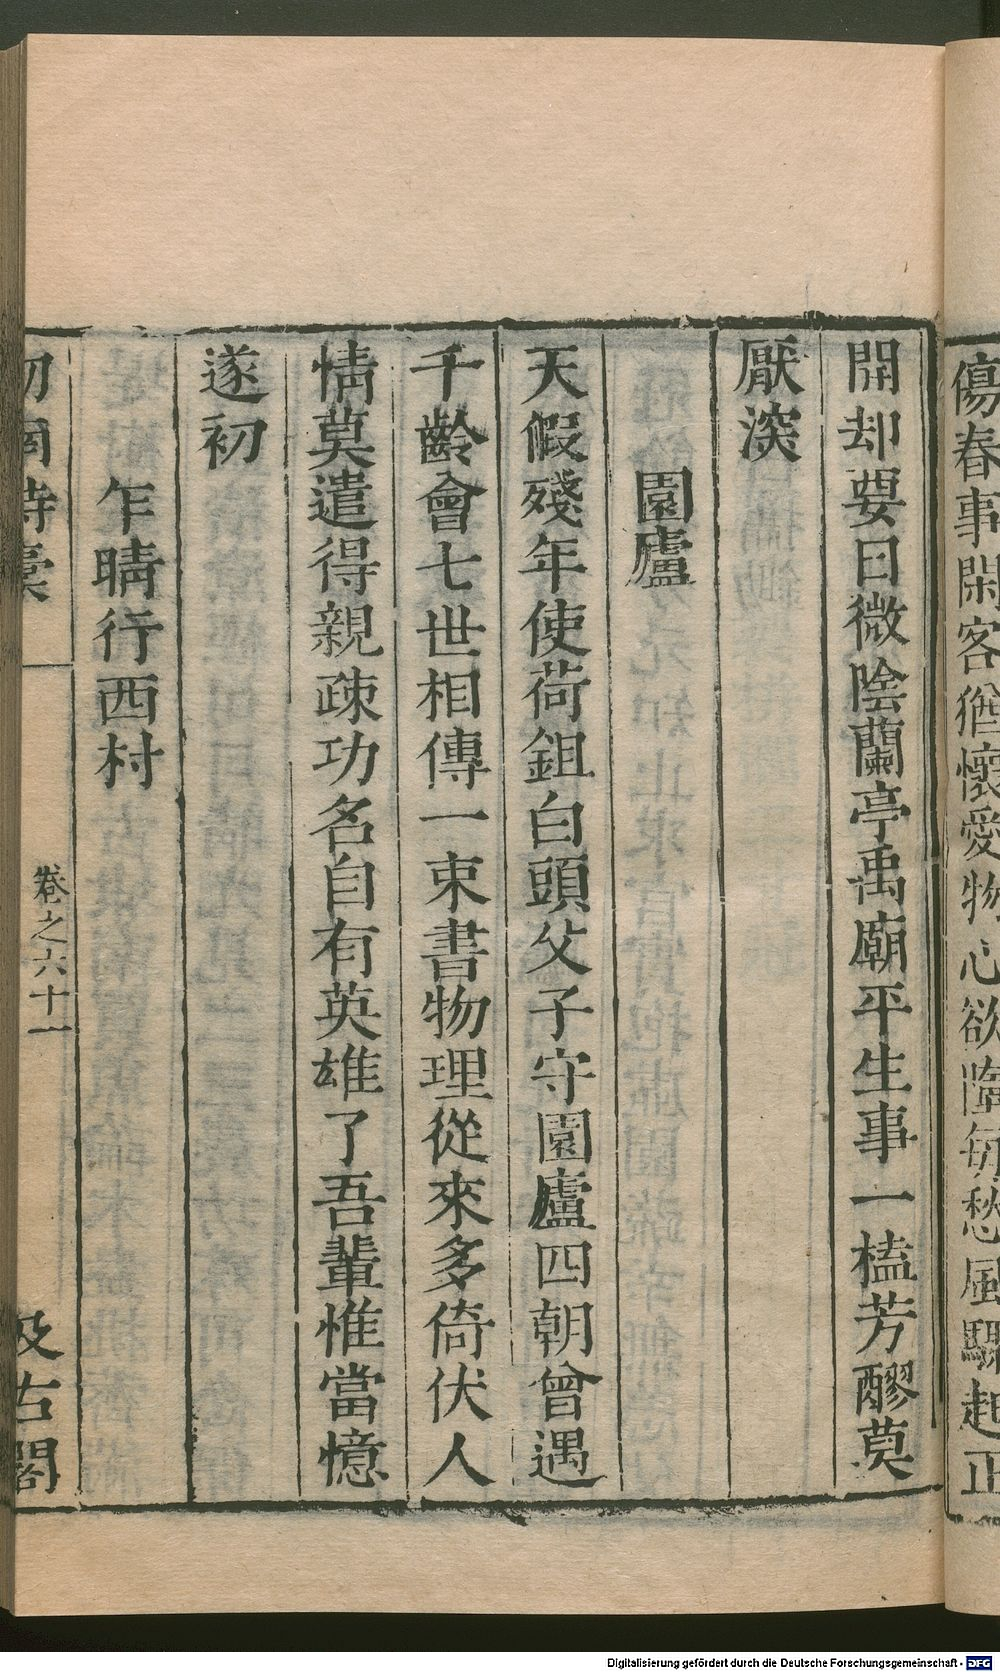 傷春事閑客猶懷愛物心欲隂每愁風驟起正
開却要日微陰蘭亭禹廟平生事一榼芳醪莫
厭深
園廬
天假殘年使荷鉏白頭父子守園廬四朝曾遇
千齡會七世相傳一束書物理從來多倚伏人
情莫遣得親疎功名自有英雄了吾輩惟當憶
遂初
乍晴行西村
劒南詩稾
卷之六十一
汲古閣
Digitalisierung gefördert durch die Deutsche Forschungsgemeinschaft - DFG